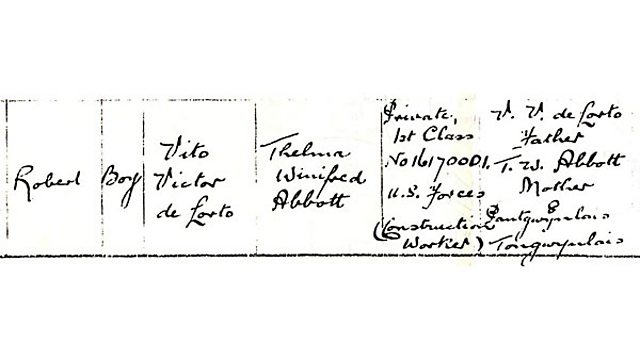 Robert
Boy
Vito
Victor
de Lorto
Thelma
Winifred
Abbott
Private,
1st Class
No 16170001.
U.S. Forces
(Construction
Worker)
V. V. de Lorto
Father
T. W. Abbott
Mother
Tongwynlais